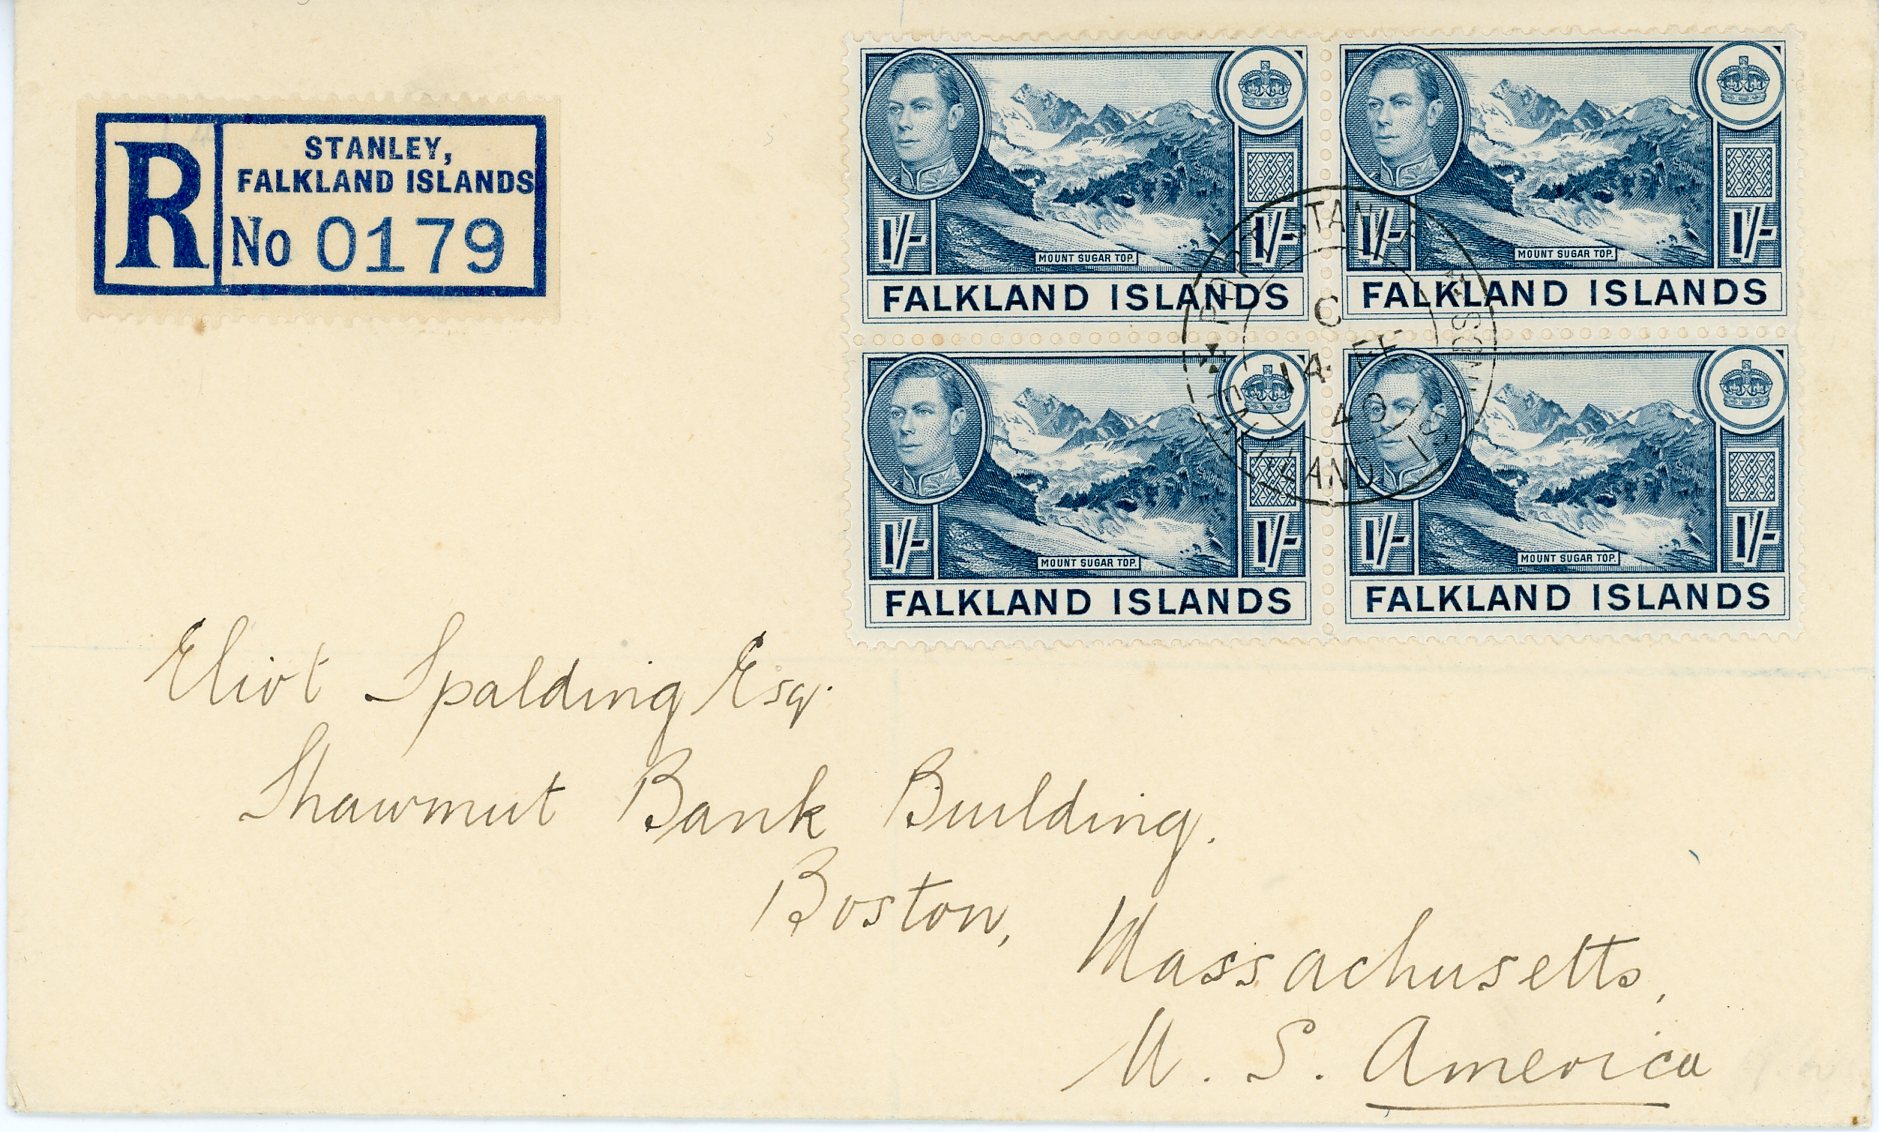 R
STANLEY,
FALKLAND ISLANDS
No 0179
1/- 1/-
MOUNT SUGAR TOP.
FALKLAND ISLANDS
1/- 1/-
MOUNT SUGAR TOP.
FALKLAND ISLANDS
1/- 1/-
MOUNT SUGAR TOP.
FALKLAND ISLANDS
1/- 1/-
MOUNT SUGAR TOP.
FALKLAND ISLANDS
C
14 FE
40
Eliot Spalding Esq.
Shawmut Bank Building.
Boston,
Massachusetts,
U. S. America